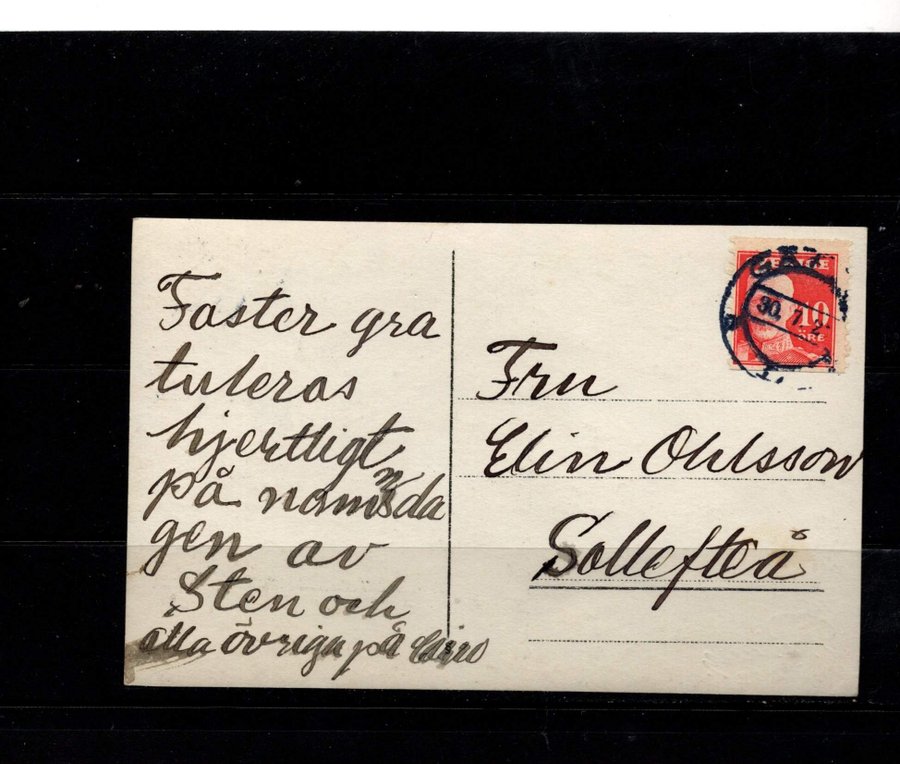 Faster gra
tuleras
hjerttligt
på namnsda
gen av
Sten och
alla övriga på
Fru
Elin Ohlsson
Sollefteå
SVERIGE
10
ÖRE
30. 7. 2